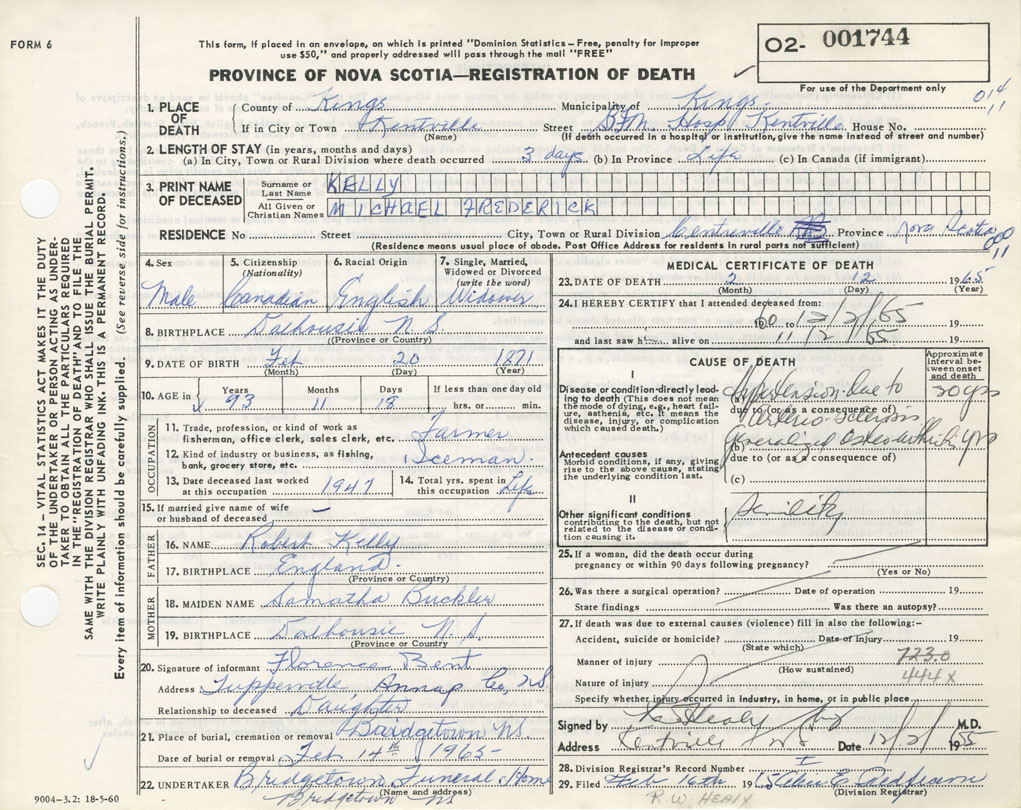 FORM 6
This form, if placed in an envelope, on which is printed "Dominion Statistics – Free, penalty for improper
use $50," and properly addressed will pass through the mail "FREE"
O2- 001744
PROVINCE OF NOVA SCOTIA—REGISTRATION OF DEATH
For use of the Department only
014
11
1. PLACE OF DEATH
County of Kings Municipality of Kings
If in City or Town Kentville Street B.F.M. Hosp Kentville House No.
(Name) (If death occurred in a hospital or institution, give its name instead of street and number)
2. LENGTH OF STAY (in years, months and days)
(a) In City, Town or Rural Division where death occurred 3 days (b) In Province Life (c) In Canada (if immigrant)
3. PRINT NAME OF DECEASED
Surname or Last Name KELLY
All Given or Christian Names MICHAEL FREDERICK
RESIDENCE No Street City, Town or Rural Division Centreville Province Nova Scotia
(Residence means usual place of abode. Post Office Address for residents in rural parts not sufficient)
000
11
4. Sex Male
5. Citizenship (Nationality) Canadian
6. Racial Origin English
7. Single, Married, Widowed or Divorced (write the word) Widower
8. BIRTHPLACE Dalhousie N.S.
(Province or Country)
9. DATE OF BIRTH Feb 20 1871
(Month) (Day) (Year)
10. AGE in Years 93 Months 11 Days 18 If less than one day old hrs. or min.
OCCUPATION
11. Trade, profession, or kind of work as fisherman, office clerk, sales clerk, etc. Farmer
12. Kind of industry or business, as fishing, bank, grocery store, etc. Iceman
13. Date deceased last worked at this occupation 1947
14. Total yrs. spent in this occupation Life
15. If married give name of wife or husband of deceased –
FATHER
16. NAME Robert Kelly
17. BIRTHPLACE England
(Province or Country)
MOTHER
18. MAIDEN NAME Samatha Buckler
19. BIRTHPLACE Dalhousie N.S.
(Province or Country)
20. Signature of informant Florence Bent
Address Tupperville Annap Co, NS
Relationship to deceased Daughter
21. Place of burial, cremation or removal Bridgetown NS.
Date of burial or removal Feb 14th 1965
22. UNDERTAKER Bridgetown Funeral Home
(Name and address)
Bridgetown NS
MEDICAL CERTIFICATE OF DEATH
23. DATE OF DEATH 2 12 1965
(Month) (Day) (Year)
24. I HEREBY CERTIFY that I attended deceased from:
60 to 12/2/65 19
and last saw h alive on 11/2/65 19
CAUSE OF DEATH
Approximate interval between onset and death
I
Disease or condition directly leading to death (This does not mean the mode of dying, e.g., heart failure, asthenia, etc. It means the disease, injury, or complication which caused death.)
Hypertension due to 20 yrs
due to (or as a consequence of)
Arterio Sclerosis
Generalized Osteoarthritis yrs
(b)
due to (or as a consequence of)
(c)
Antecedent causes
Morbid conditions, if any, giving rise to the above cause, stating the underlying condition last.
II
Other significant conditions
contributing to the death, but not related to the disease or condition causing it.
Senility
25. If a woman, did the death occur during
pregnancy or within 90 days following pregnancy?
(Yes or No)
26. Was there a surgical operation? Date of operation 19
State findings Was there an autopsy?
27. If death was due to external causes (violence) fill in also the following:–
Accident, suicide or homicide? Date of injury 19
(State which)
Manner of injury 723.0
(How sustained)
Nature of injury 444X
Specify whether injury occurred in industry, in home, or in public place
Signed by Healy M.D.
Address Kentville NS Date 12/2/1965
28. Division Registrar's Record Number
29. Filed Feb 16th 19
(Division Registrar)
R.W. HEALY
SEC. 14 – VITAL STATISTICS ACT MAKES IT THE DUTY
OF THE UNDERTAKER OR PERSON ACTING AS UNDER-
TAKER TO OBTAIN ALL THE PARTICULARS REQUIRED
IN THE "REGISTRATION OF DEATH" AND TO FILE THE
SAME WITH THE DIVISION REGISTRAR WHO SHALL ISSUE THE BURIAL PERMIT.
WRITE PLAINLY WITH UNFADING INK. THIS IS A PERMANENT RECORD.
Every item of information should be carefully supplied. (See reverse side for instructions.)
9004-3.2: 18-5-60